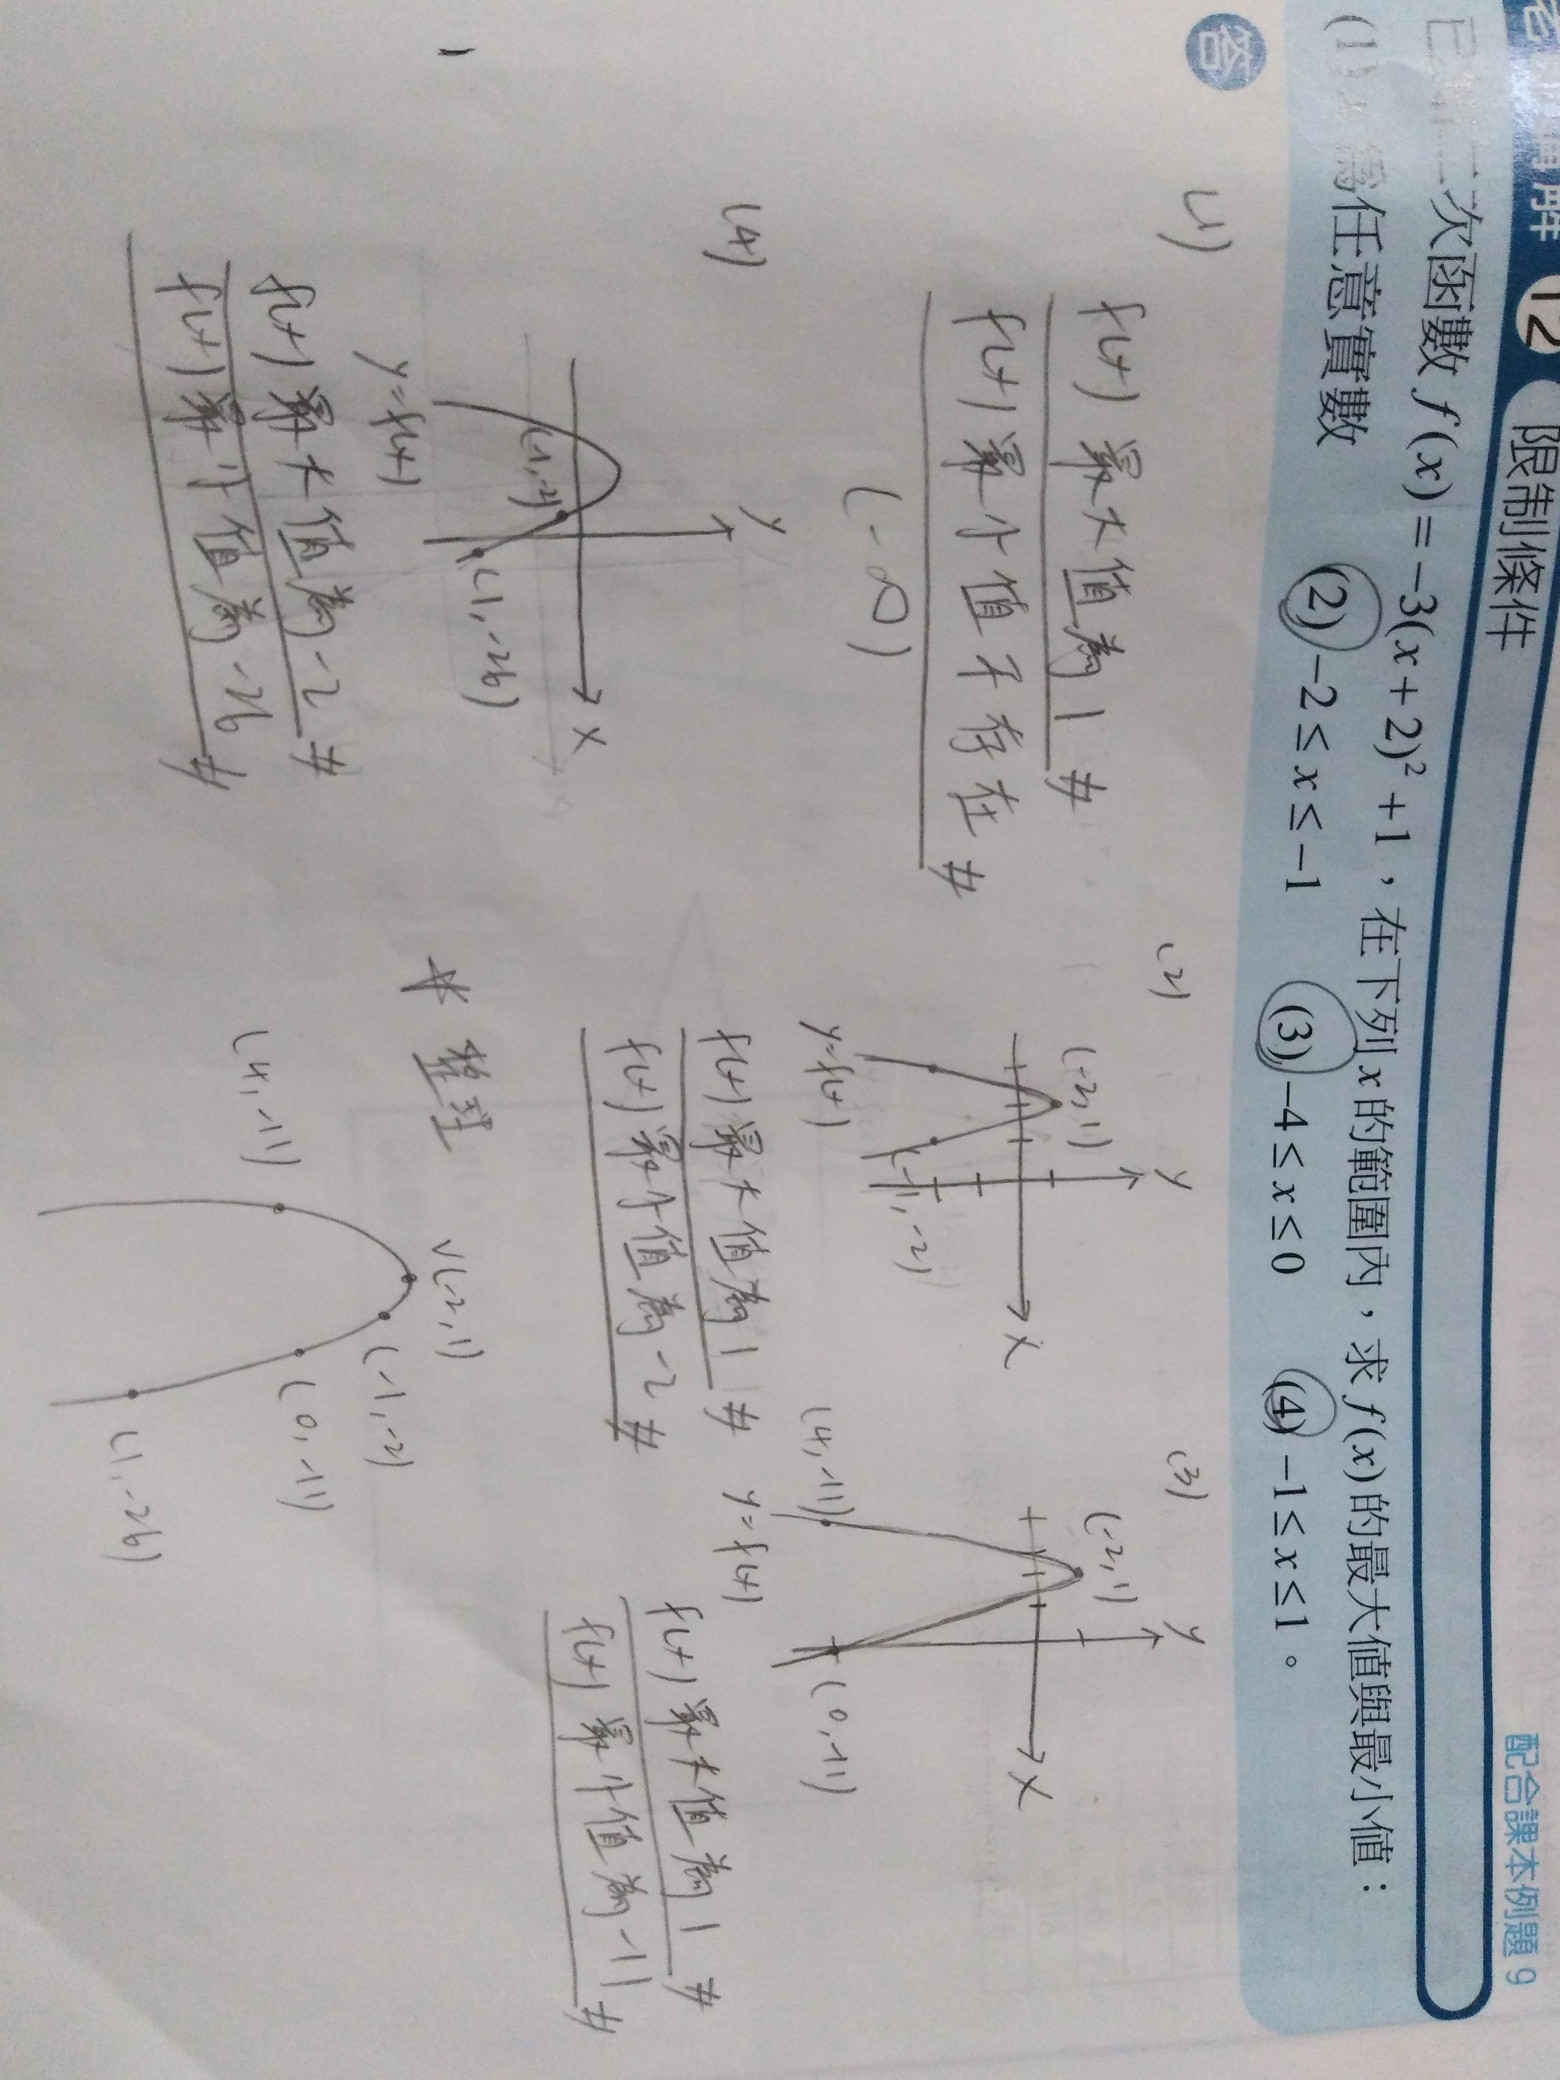 12 限制條件
配合課本例題 9
二次函數 f(x) = -3(x+2)² + 1，在下列 x 的範圍內，求 f(x) 的最大值與最小值：
(1) x 為任意實數 (2) -2 ≤ x ≤ -1 (3) -4 ≤ x ≤ 0 (4) -1 ≤ x ≤ 1。
答
(1)
f(x) 最大值為 1 #
f(x) 最小值不存在 #
(-∞)
(2)
y
(-2,1)
x
(-1,-2)
y=f(x)
f(x) 最大值為 1 #
f(x) 最小值為 -2 #
(3)
y
(-2,1)
x
(4,-11)
(0,-11)
y=f(x)
f(x) 最大值為 1 #
f(x) 最小值為 -11 #
(4)
y
x
(-1,-2)
(1,-26)
y=f(x)
f(x) 最大值為 -2 #
f(x) 最小值為 -26 #
☆ 整理
V(-2,1)
(-1,-2)
(4,-11)
(0,-11)
(1,-26)